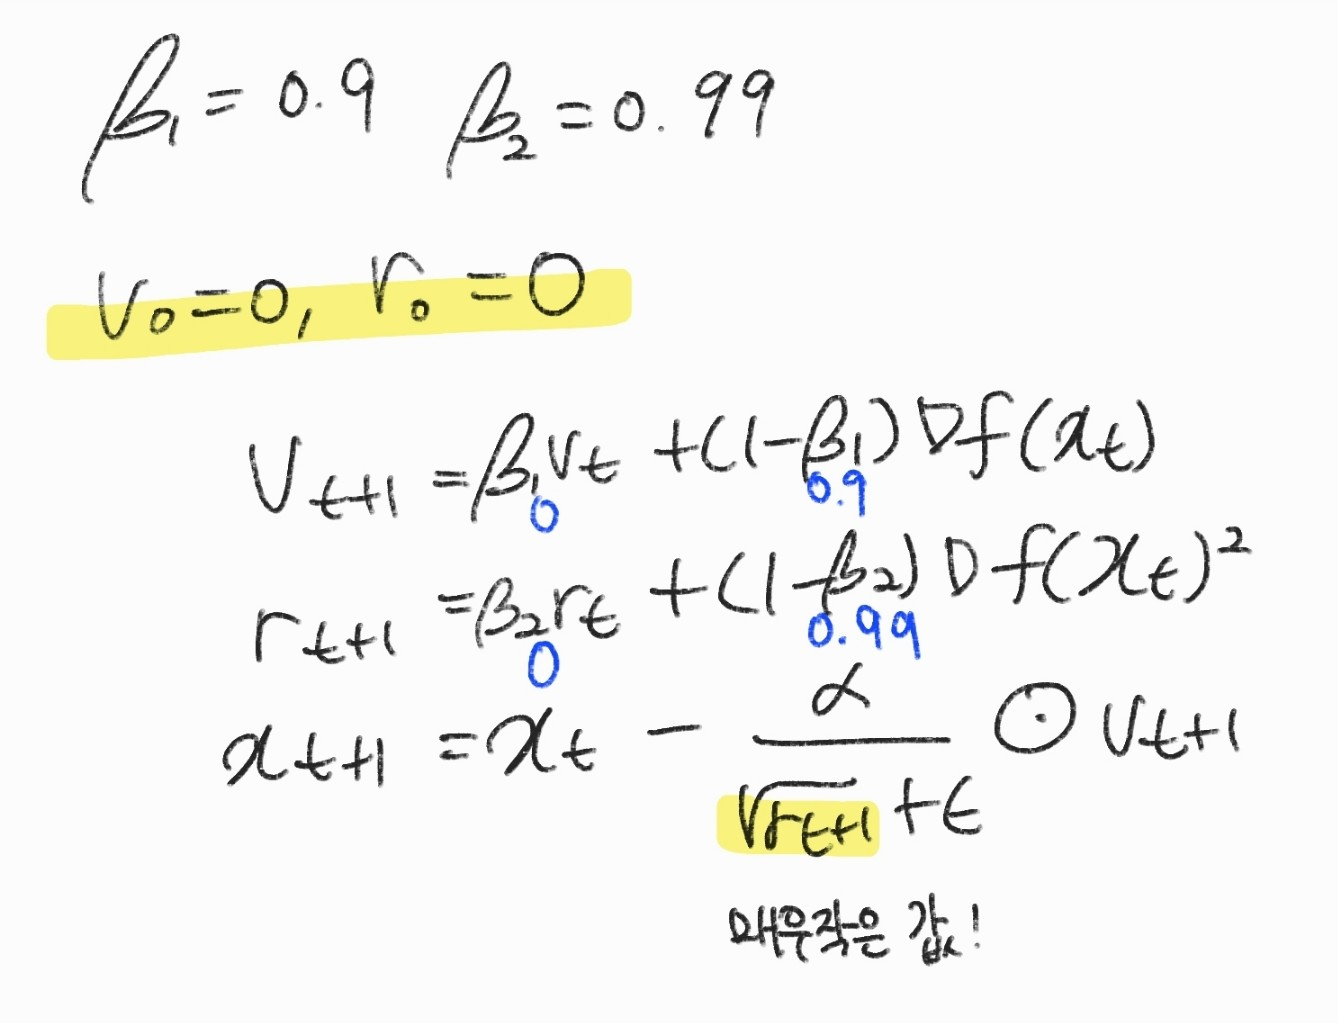 β₁ = 0.9 β₂ = 0.99
v₀ = 0, r₀ = 0
v_{t+1} = β₁v_t + (1-β₁)∇f(x_t)
0 0.9
r_{t+1} = β₂r_t + (1-β₂)∇f(x_t)²
0 0.99
x_{t+1} = x_t - α / (√r_{t+1} + ε) ⊙ v_{t+1}
매우작은 값!